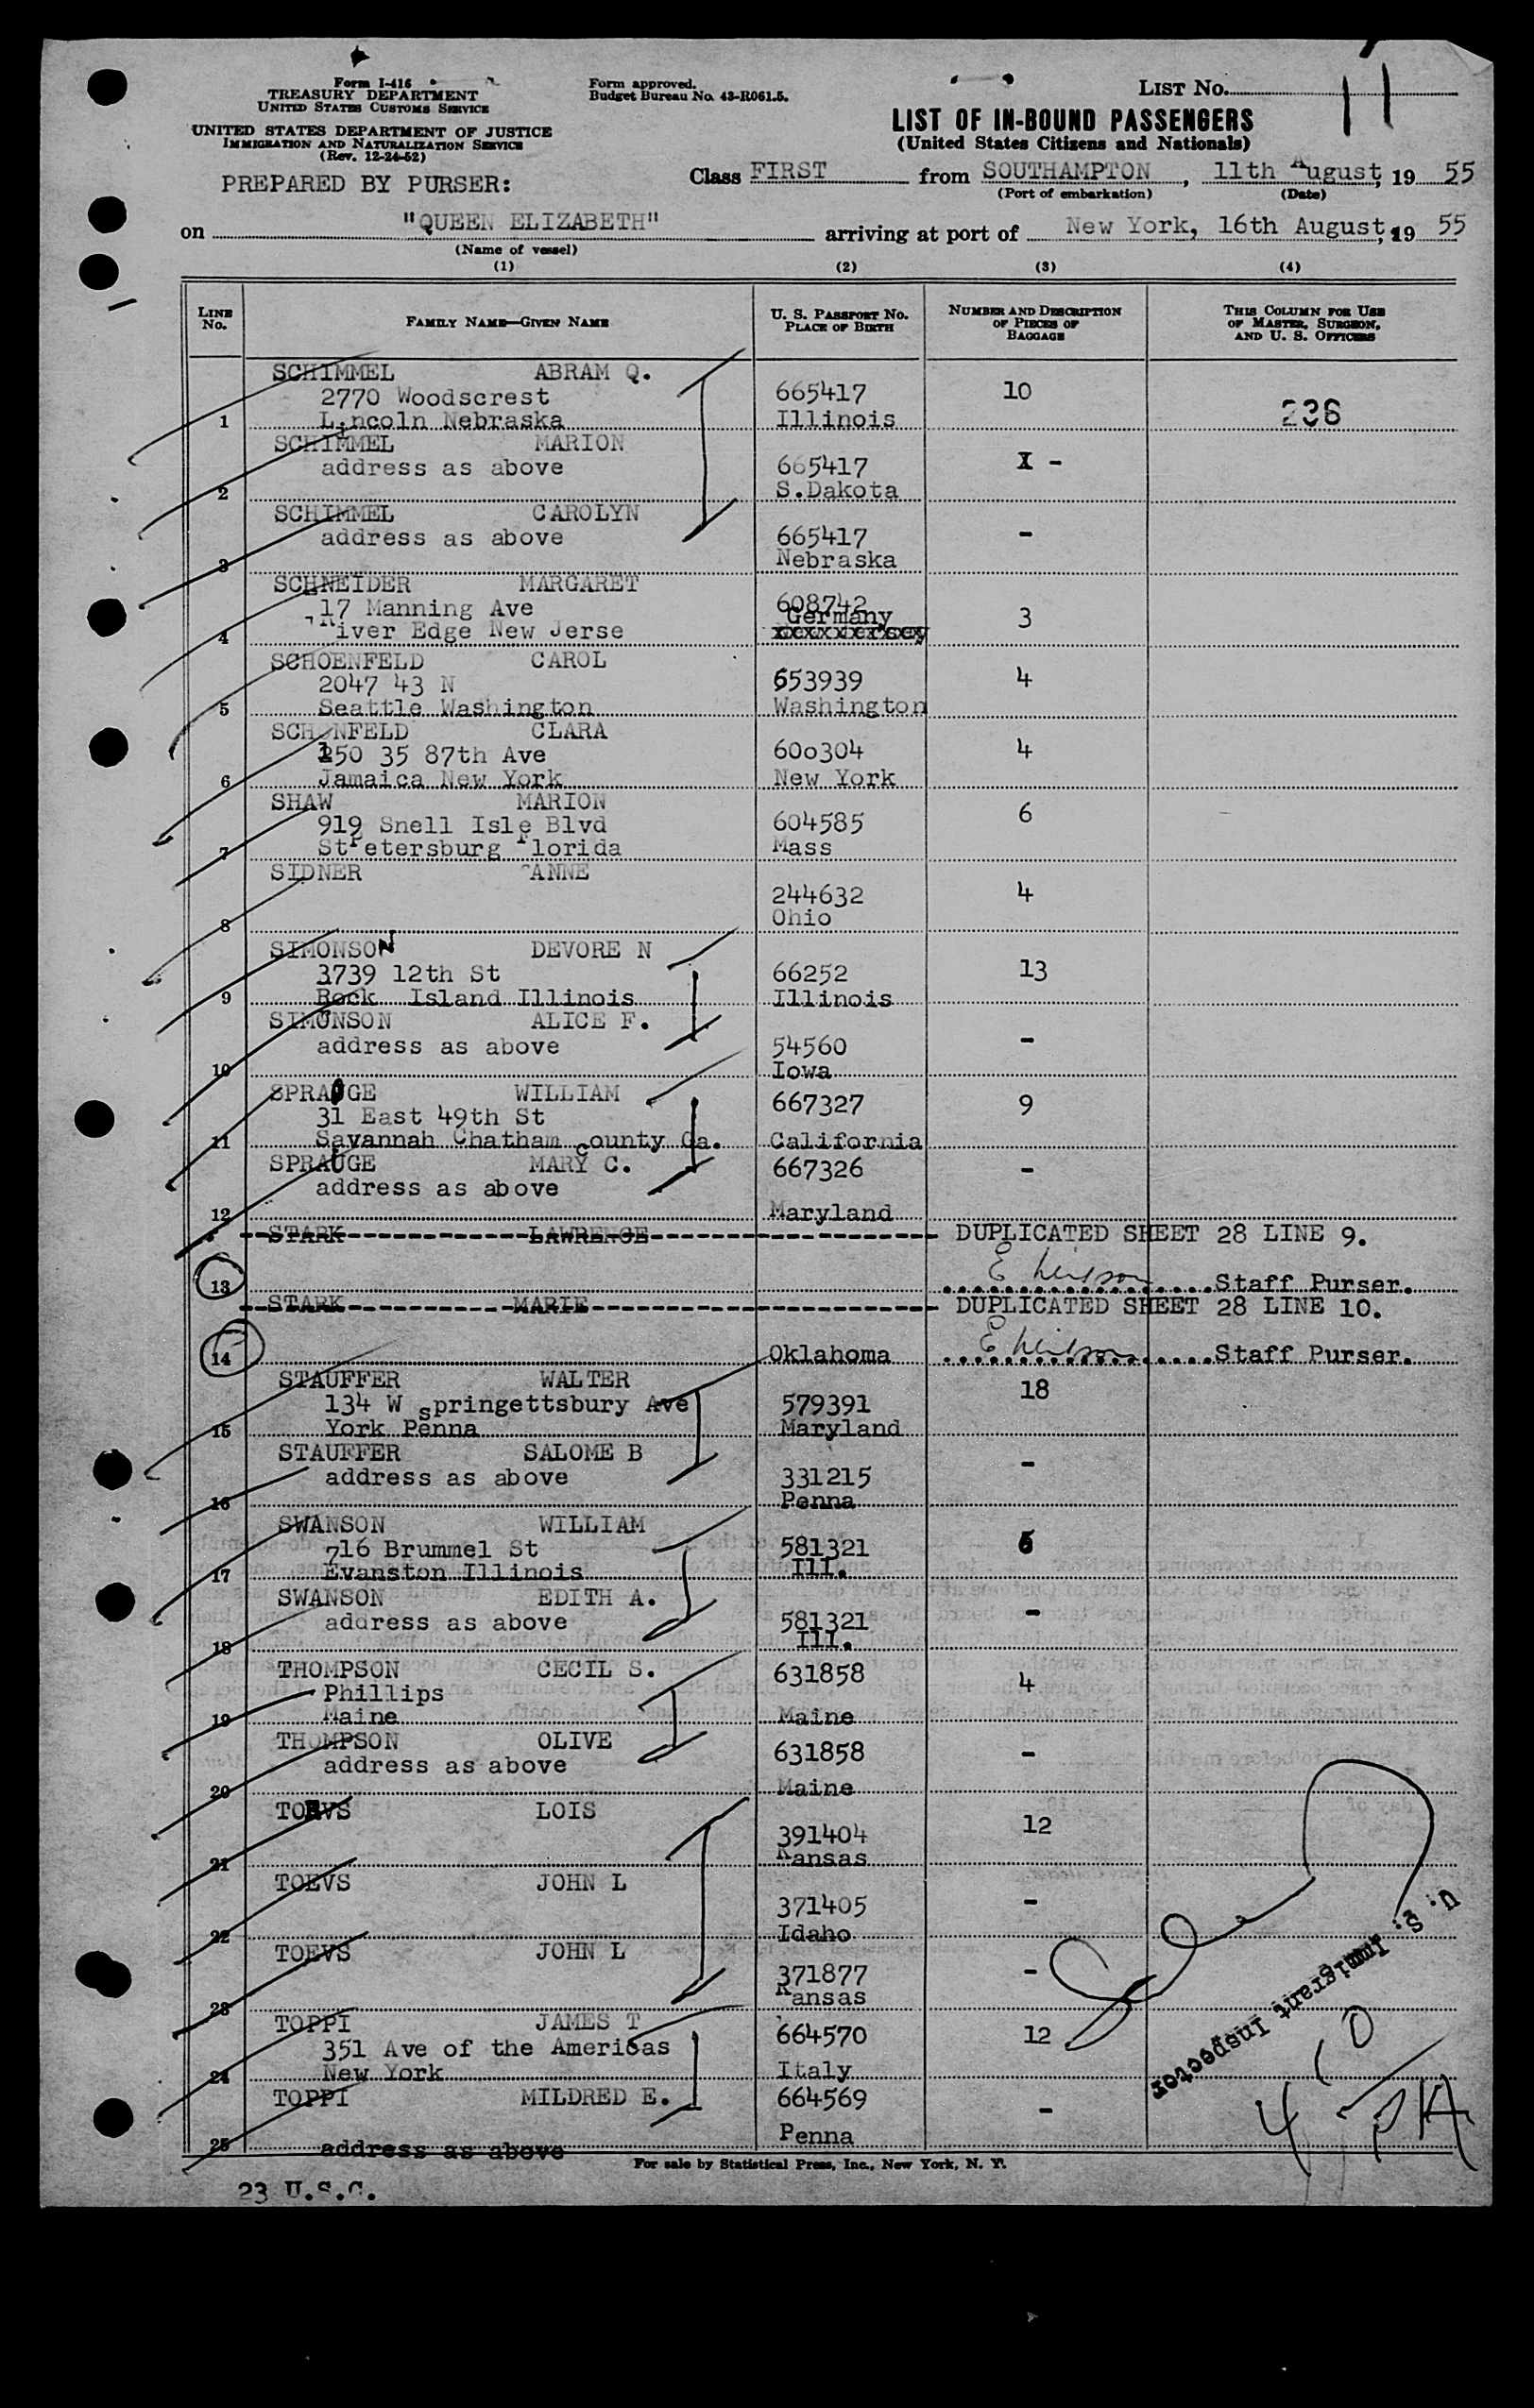 Form I-416
TREASURY DEPARTMENT
UNITED STATES CUSTOMS SERVICE
UNITED STATES DEPARTMENT OF JUSTICE
IMMIGRATION AND NATURALIZATION SERVICE
(Rev. 12-24-52)
PREPARED BY PURSER:
Form approved.
Budget Bureau No. 43-R061.5.
LIST NO. 11
LIST OF IN-BOUND PASSENGERS
(United States Citizens and Nationals)
Class FIRST from SOUTHAMPTON, 11th August, 19 55
(Port of embarkation) (Date)
on "QUEEN ELIZABETH" arriving at port of New York, 16th August, 19 55
(Name of vessel)
(1) (2) (3) (4)
LINE No. FAMILY NAME—GIVEN NAME U. S. PASSPORT NO. PLACE OF BIRTH NUMBER AND DESCRIPTION OF PIECES OF BAGGAGE THIS COLUMN FOR USE OF MASTER, SURGEON, AND U. S. OFFICERS
SCHIMMEL ABRAM Q.
2770 Woodscrest 665417 10
1 Lincoln Nebraska Illinois 236
SCHIMMEL MARION
address as above 665417 -
2 S.Dakota
SCHIMMEL CAROLYN
address as above 665417 -
3 Nebraska
SCHNEIDER MARGARET
17 Manning Ave 608742 3
4 River Edge New Jerse Germany
SCHOENFELD CAROL
2047 43 N 653939 4
5 Seattle Washington Washington
SCHONFELD CLARA
150 35 87th Ave 60o304 4
6 Jamaica New York New York
SHAW MARION
919 Snell Isle Blvd 604585 6
7 StPetersburg Florida Mass
SIDNER ANNE
244632 4
8 Ohio
SIMONSON DEVORE N
3739 12th St 66252 13
9 Rock Island Illinois Illinois
SIMONSON ALICE F.
address as above 54560 -
10 Iowa
SPRAUGE WILLIAM
31 East 49th St 667327 9
11 Savannah Chatham County Ga. California
SPRAUGE MARY C. 667326 -
address as above
12 Maryland
STARK LAWRENCE DUPLICATED SHEET 28 LINE 9.
13 Staff Purser.
STARK MARIE DUPLICATED SHEET 28 LINE 10.
14 Oklahoma Staff Purser.
STAUFFER WALTER 18
134 W Springettsbury Ave 579391
15 York Penna Maryland
STAUFFER SALOME B
address as above 331215 -
16 Penna
SWANSON WILLIAM
716 Brummel St 581321
17 Evanston Illinois Ill.
SWANSON EDITH A.
address as above 581321 -
18 Ill.
THOMPSON CECIL S. 631858 4
Phillips
19 Maine Maine
THOMPSON OLIVE
address as above 631858 -
20 Maine
TOEVS LOIS
391404 12
21 Kansas
TOEVS JOHN L
371405 -
22 Idaho
TOEVS JOHN L
371877 -
23 Kansas
TOPPI JAMES T
351 Ave of the Americas 664570 12
24 New York Italy
TOPPI MILDRED E. 664569 -
25 address as above Penna
U. S. Immigrant Inspector
For sale by Statistical Press, Inc., New York, N. Y.
23 U.S.C.